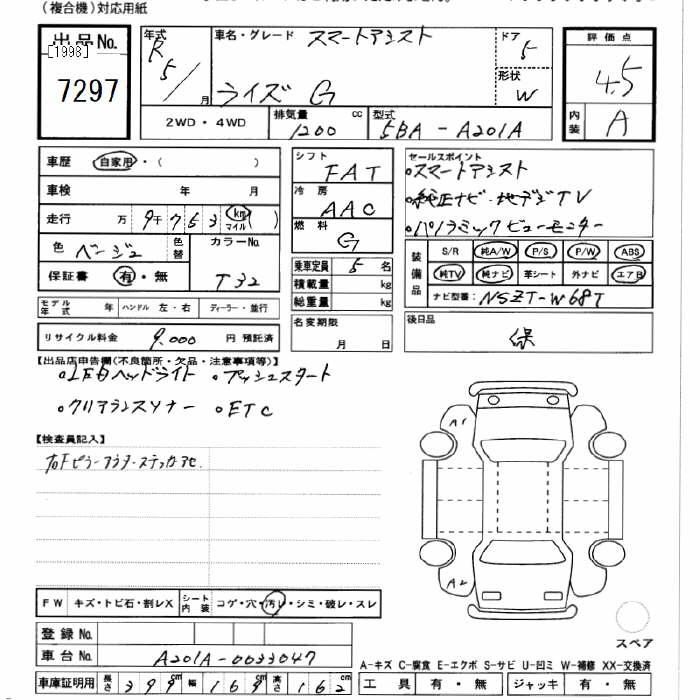 (複合機)対応用紙
出品No.
[1998]
7297
年式
R5/月
車名・グレード スマートアシスト
ライズ G
ドア 5
形状 W
評価点
4.5
内装 A
2WD・4WD
排気量 1200 cc
型式 5BA-A201A
車歴 自家用・( )
車検 年 月
走行 万 9千 763 km マイル )
色 ベージュ
色替
カラーNo. T32
保証書 有・無
モデル年式 年
ハンドル 左・右
ディーラー・並行
リサイクル料金 9,000 円 預託済
シフト FAT
冷房 AAC
燃料 G
乗車定員 5 名
積載量 kg
総重量 kg
名変期限 月 日
セールスポイント
・スマートアシスト
・純正ナビ・地デジTV
・パノラミックビューモニター
装備品
S/R 純A/W P/S P/W ABS
純TV 純ナビ 革シート 外ナビ エアB
ナビ型番: NSZT-W68T
後日品
保
【出品店申告欄(不良箇所・欠品・注意事項等)】
・LEDヘッドライト ・プッシュスタート
・クリアランスソナー ・ETC
【検査員記入】
右Fピラーアウターステッカーアセ
FW キズ・トビ石・割レX
シート内装 コゲ・穴・汚レ・シミ・破レ・スレ
登録No.
車台No. A201A-0033047
車庫証明用 長さ 399cm 幅 169cm 高さ 162cm
A1
A2
スペア
A-キズ C-腐食 E-エクボ S-サビ U-凹ミ W-補修 XX-交換済
工具 有・無
ジャッキ 有・無